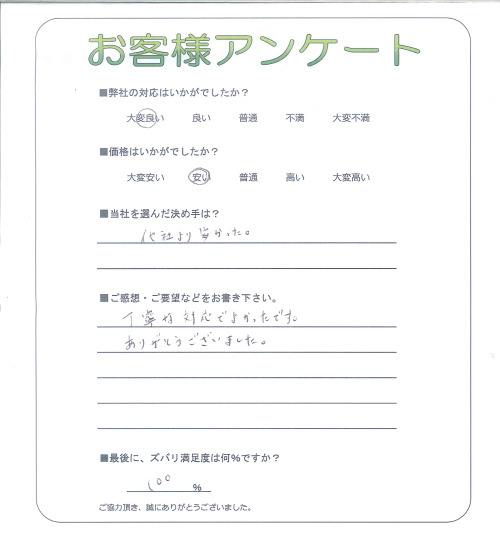 お客様アンケート
■弊社の対応はいかがでしたか？
大変良い 良い 普通 不満 大変不満
■価格はいかがでしたか？
大変安い 安い 普通 高い 大変高い
■当社を選んだ決め手は？
他社より安かった。
■ご感想・ご要望などをお書き下さい。
丁寧な対応でよかったです。
ありがとうございました。
■最後に、ズバリ満足度は何%ですか？
100 %
ご協力頂き、誠にありがとうございました。